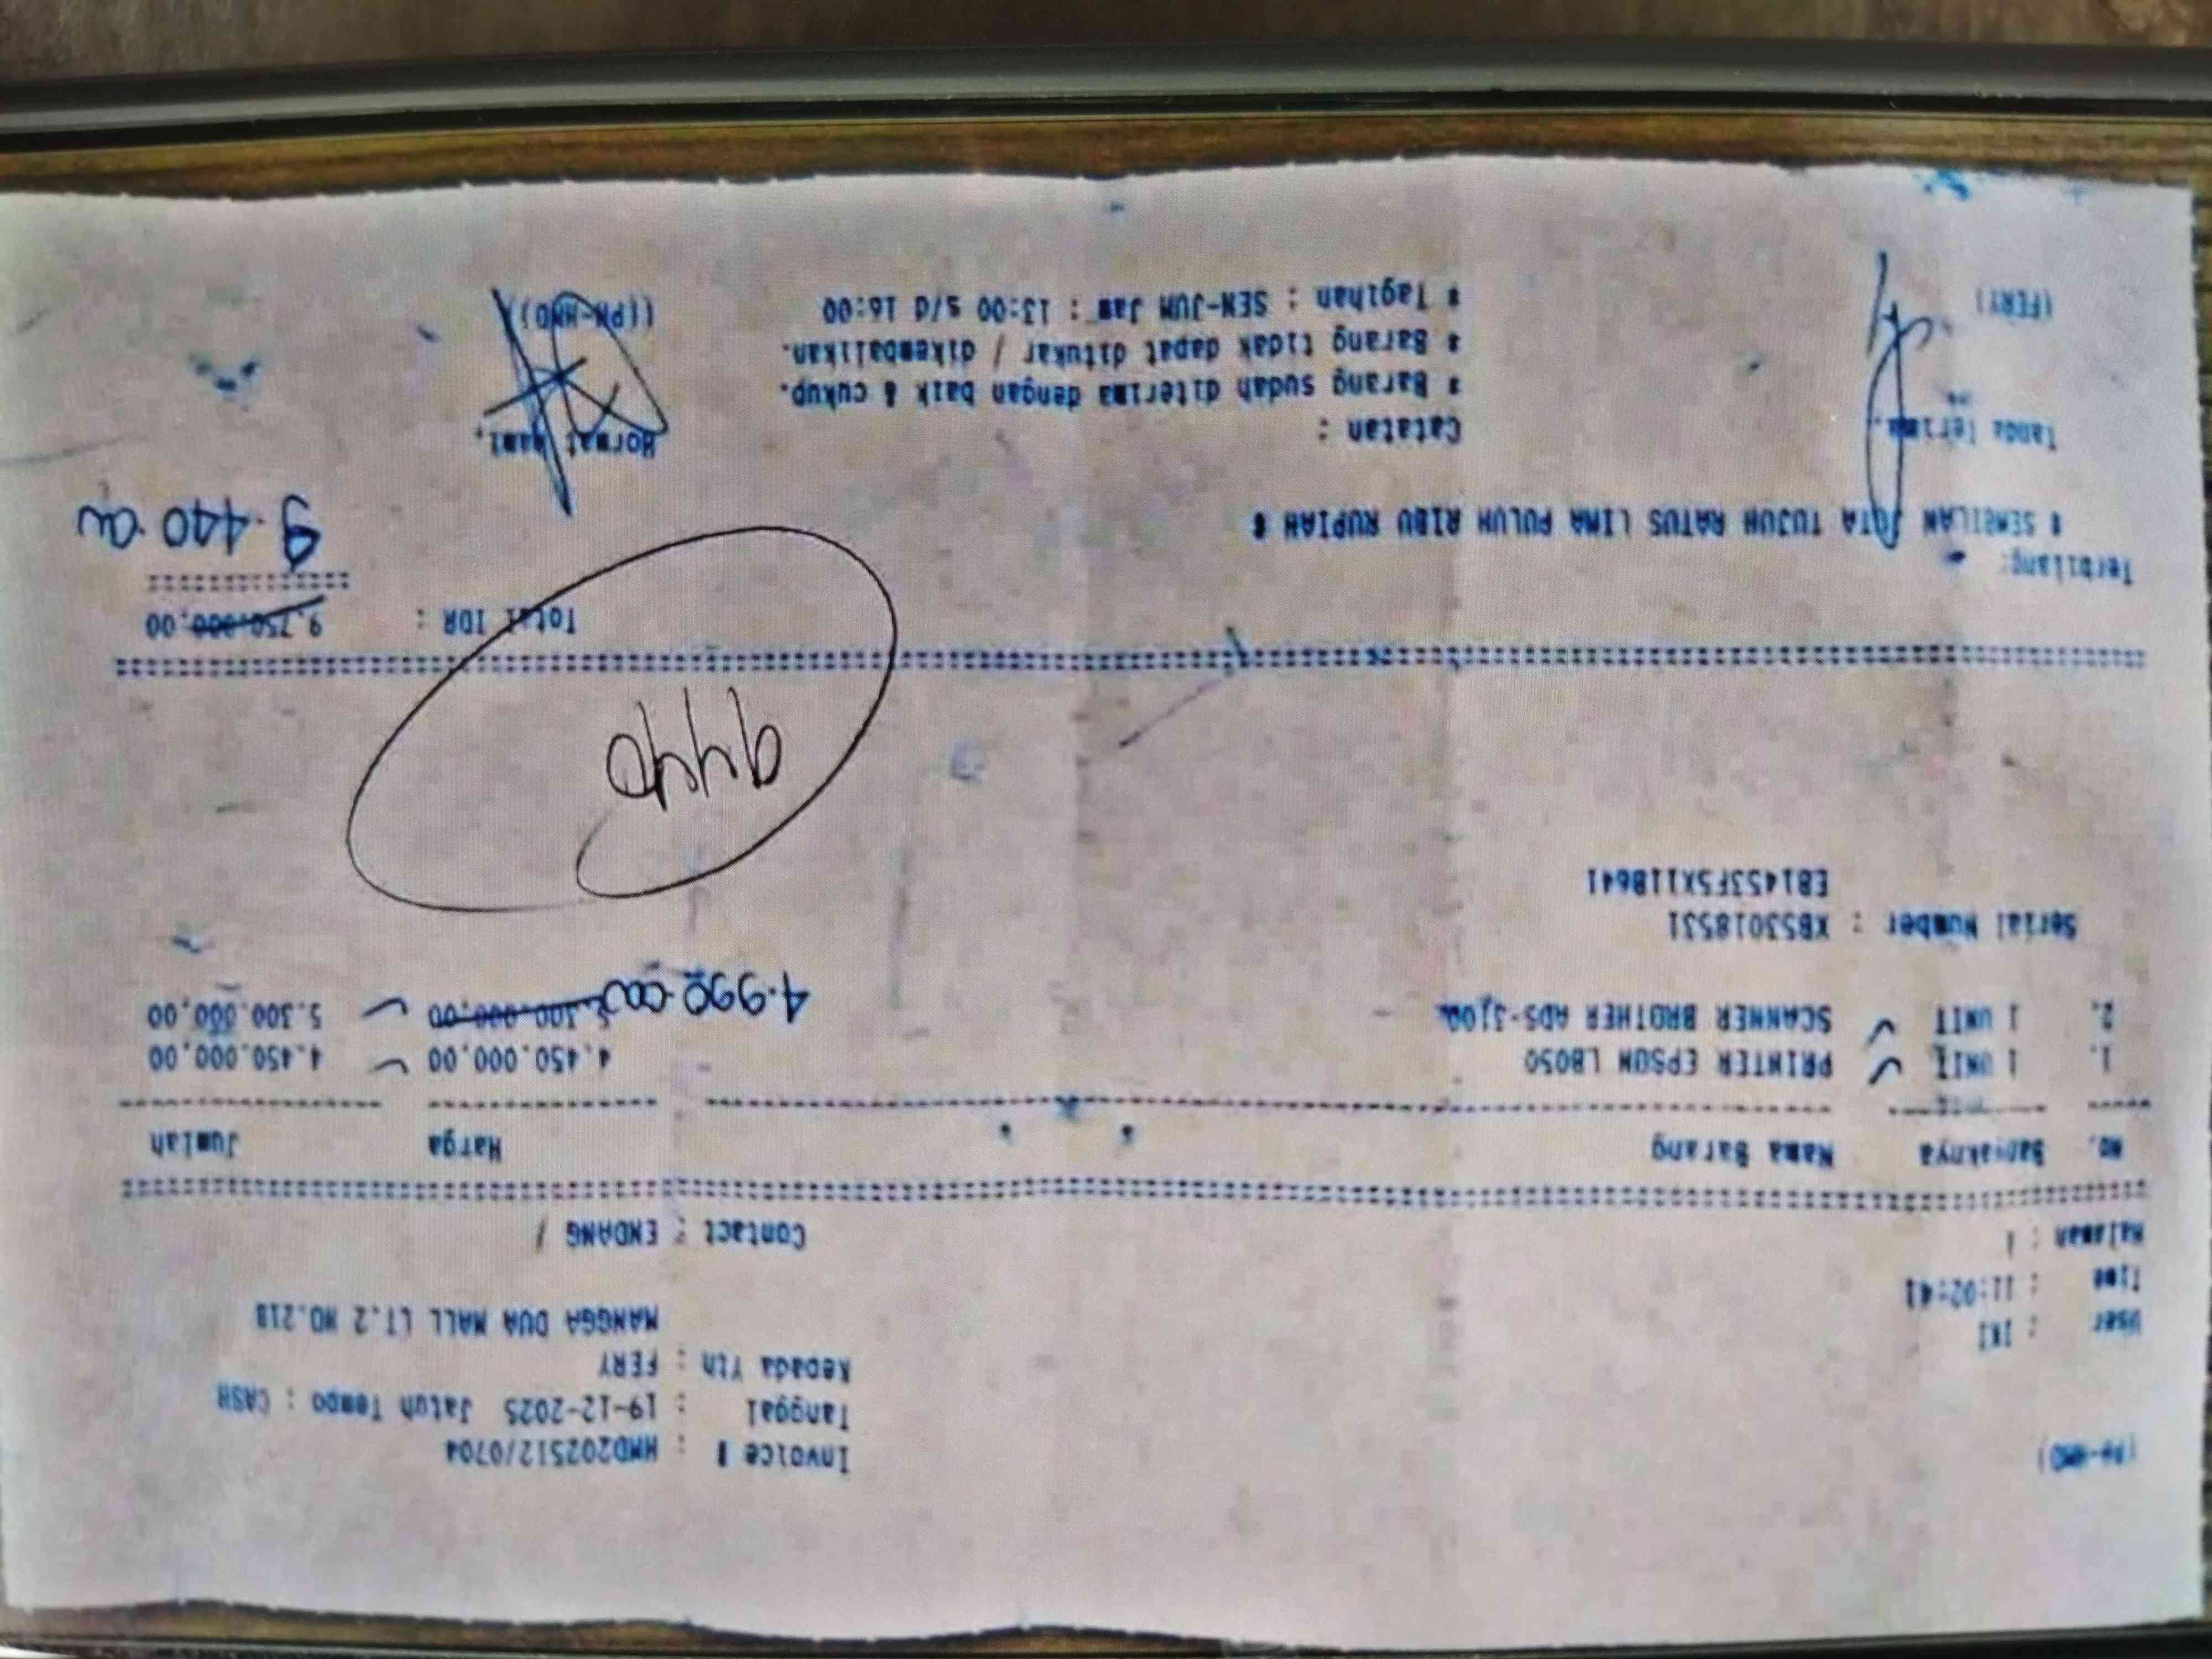 (PH-HMD)
Invoice # : HMD202512/0704
Tanggal : 19-12-2025 Jatuh Tempo : CASH
User : IKI
Kepada Yth : FERY
Time : 11:02:41
MANGGA DUA MALL LT.2 NO.21B
Halaman : 1
Contact : ENDANG /
NO. Banyaknya Nama Barang Harga Jumlah
1. 1 UNIT PRINTER EPSON L8050 4.450.000,00 4.450.000,00
2. 1 UNIT SCANNER BROTHER ADS-3100 5.300.000,00 5.300.000,00
4.990.000
Serial Number : XBS3018531
EB1453F5X118641
9440
Total IDR : 9.750.000,00
Terbilang:
# SEMBILAN JUTA TUJUH RATUS LIMA PULUH RIBU RUPIAH #
9.440
Tanda Terima, Catatan : Hormat Kami,
* Barang sudah diterima dengan baik & cukup.
* Barang tidak dapat ditukar / dikembalikan.
(FERY) * Tagihan : SEN-JUM Jam : 13:00 s/d 16:00 ((PH-HMD))